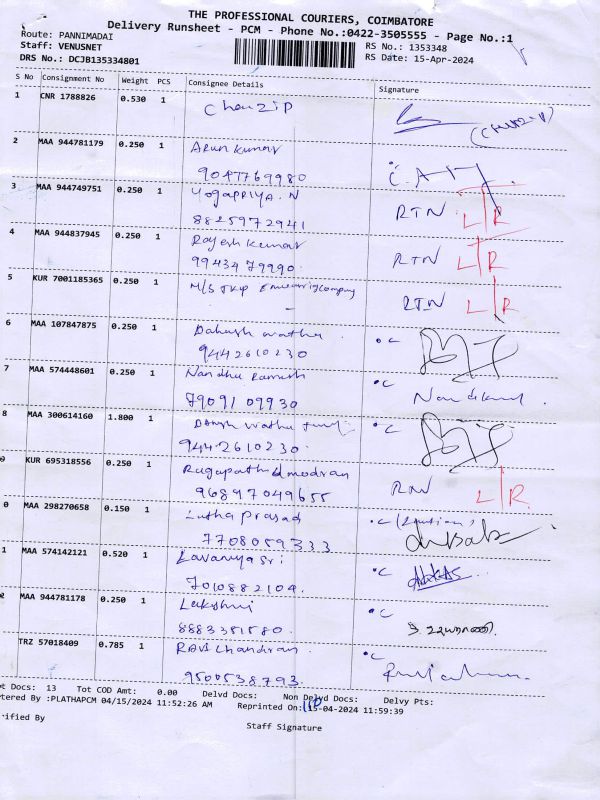 THE PROFESSIONAL COURIERS, COIMBATORE
Delivery Runsheet - PCM - Phone No.:0422-3505555 - Page No.:1
Route: PANNIMADAI
Staff: VENUSNET
RS No.: 1353348
DRS No.: DCJB135334801
RS Date: 15-Apr-2024
S No Consignment No Weight PCS Consignee Details Signature
1 CNR 1788826 0.530 1 Chouzip
2 MAA 944781179 0.250 1 Arun kumar
9047769980
3 MAA 944749751 0.250 1 Yogapriya.N
8825972941 RTN L/R
4 MAA 944837945 0.250 1 Rajesh kumar
9943479990. RTN L/R
5 KUR 7001185365 0.250 1 M/S
RTN L/R
6 MAA 107847875 0.250 1
9442610230
7 MAA 574448601 0.250 1 Nandhu Ramesh
79091 09930
8 MAA 300614160 1.800 1
9442610230.
9 KUR 695318556 0.250 1
96897049655 RTN L/R
0 MAA 298270658 0.150 1 Latha prasad
7708059333
1 MAA 574142121 0.520 1 Lavanya Sri
7010882104.
2 MAA 944781178 0.250 1 Lakshmi
8883351580.
TRZ 57018409 0.785 1 Ravi chandran.
9500538793.
t Docs: 13 Tot COD Amt: 0.00 Delvd Docs: Non Delvd Docs: Delvy Pts:
tered By :PLATHAPCM 04/15/2024 11:52:26 AM Reprinted On:15-04-2024 11:59:39
rified By
Staff Signature